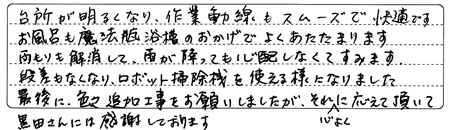 台所が明るくなり、作業動線もスムーズで快適です
お風呂も魔法瓶浴槽のおかげでよくあたたまります
雨もりも解消して、雨が降っても心配しなくてすみます。
段差もなくなり、ロボット掃除機を使える様になりました
最後に、色々追加工事をお願いしましたが、それに心よく応えて頂いて
黒田さんには感謝しております